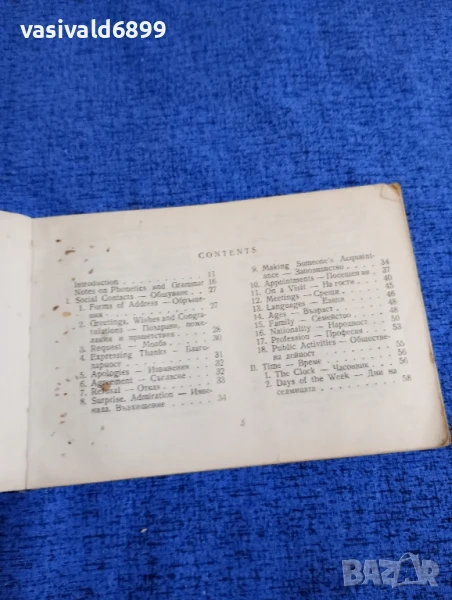 vasivald6899
CONTENTS
Introduction 11
Notes on Phonetics and Grammar 16
I. Social Contacts — Общуване 27
1. Forms of Address — Обръщения 27
2. Greetings, Wishes and Congratulations — Поздрави, пожелания и приветствия 28
3. Request — Молба 30
4. Expressing Thanks — Благодарност 31
5. Apologies — Извинения 32
6. Agreement — Съгласие 32
7. Refusal — Отказ 33
8. Surprise, Admiration — Изненада, Възхищение 34
9. Making Someone's Acquaintance — Запознанство 34
10. Appointments — Посещения 37
11. On a Visit — На гости 40
12. Meetings — Срещи 45
13. Languages — Езици 46
14. Ages — Възраст 48
15. Family — Семейство 48
16. Nationality — Народност 50
17. Profession — Професия 53
18. Public Activities — Обществена дейност 55
II. Time — Време 56
1. The Clock — Часовник 56
2. Days of the Week — Дни на седмицата 58
5
BAZAR.bg